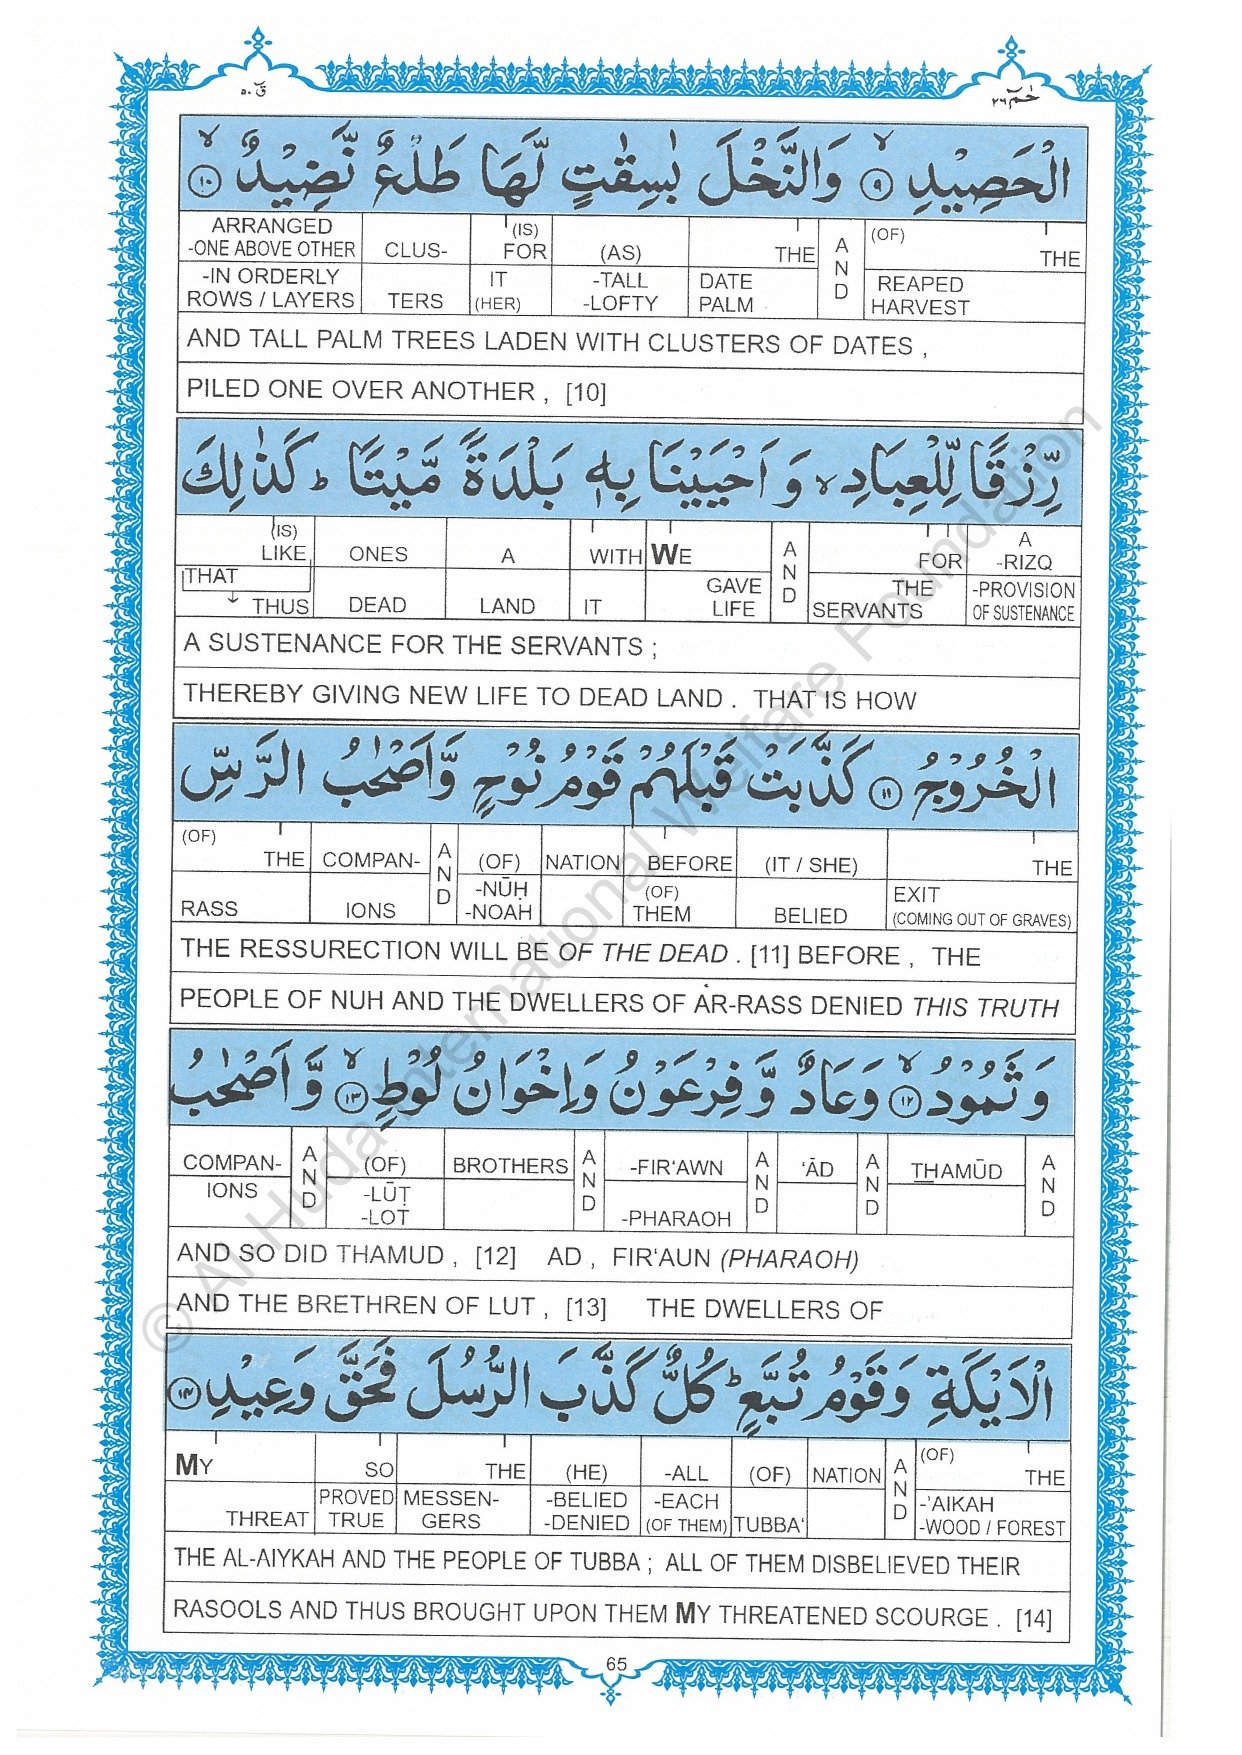 قٓ ٥٠
حٰمٓ ٢٦
الْحَصِيْدِ ۙ‏ ٩ وَالنَّخْلَ بٰسِقٰتٍ لَّهَا طَلْعٌ نَّضِيْدٌ ۙ‏ ١٠
ARRANGED -ONE ABOVE OTHER CLUS- (IS) FOR (AS) THE AND (OF) THE
-IN ORDERLY ROWS / LAYERS TERS IT (HER) -TALL -LOFTY DATE PALM REAPED HARVEST
AND TALL PALM TREES LADEN WITH CLUSTERS OF DATES ,
PILED ONE OVER ANOTHER , [10]
رِّزْقًا لِّلْعِبَادِ ۙ وَ اَحْيَيْنَا بِهٖ بَلْدَةً مَّيْتًا ؕ كَذٰلِكَ
(IS) LIKE ONES A WITH WE AND FOR A -RIZQ
THAT THUS DEAD LAND IT GAVE LIFE THE SERVANTS -PROVISION OF SUSTENANCE
A SUSTENANCE FOR THE SERVANTS ;
THEREBY GIVING NEW LIFE TO DEAD LAND . THAT IS HOW
الْخُرُوْجُ ١١ كَذَّبَتْ قَبْلَهُمْ قَوْمُ نُوْحٍ وَّاَصْحٰبُ الرَّسِّ
(OF) THE COMPAN- AND (OF) NATION BEFORE (IT / SHE) THE
RASS IONS -NŪḤ -NOAH (OF) THEM BELIED EXIT (COMING OUT OF GRAVES)
THE RESSURECTION WILL BE OF THE DEAD . [11] BEFORE , THE
PEOPLE OF NUH AND THE DWELLERS OF AR-RASS DENIED THIS TRUTH
وَ ثَمُوْدُ ۙ‏ ١٢ وَعَادٌ وَّ فِرْعَوْنُ وَاِخْوَانُ لُوْطٍ ۙ‏ ١٣ وَّ اَصْحٰبُ
COMPAN- AND (OF) BROTHERS AND -FIR‘AWN AND ‘ĀD AND THAMŪD AND
IONS -LŪṬ -LOT -PHARAOH
AND SO DID THAMUD , [12] AD , FIR‘AUN (PHARAOH)
AND THE BRETHREN OF LUT , [13] THE DWELLERS OF
الْاَيْكَةِ وَ قَوْمُ تُبَّعٍ ؕ كُلٌّ كَذَّبَ الرُّسُلَ فَحَقَّ وَعِيْدِ ١٤
MY SO THE (HE) -ALL (OF) NATION AND (OF) THE
THREAT PROVED TRUE MESSEN- GERS -BELIED -DENIED -EACH (OF THEM) TUBBA‘ -’AIKAH -WOOD / FOREST
THE AL-AIYKAH AND THE PEOPLE OF TUBBA ; ALL OF THEM DISBELIEVED THEIR
RASOOLS AND THUS BROUGHT UPON THEM MY THREATENED SCOURGE . [14]
65
© Al Huda International Welfare Foundation